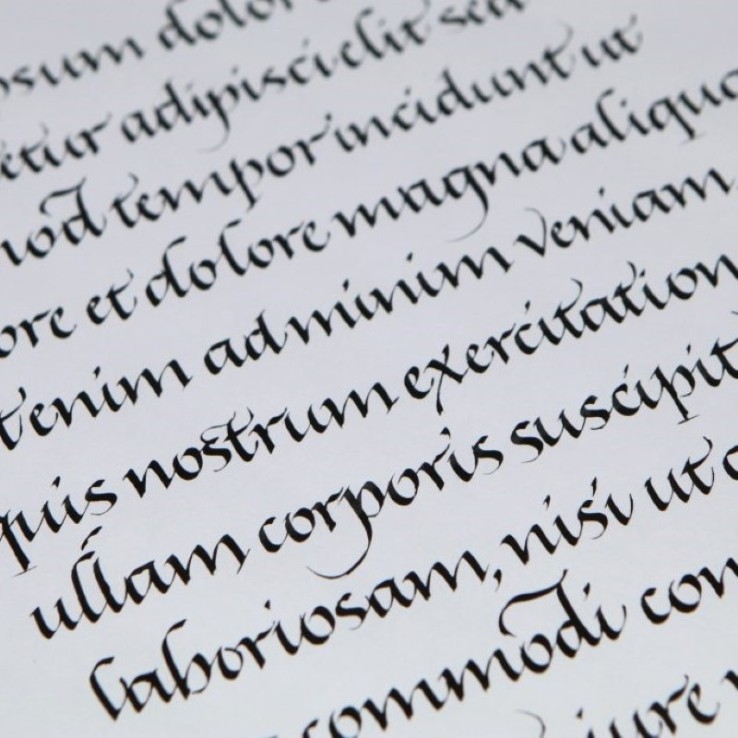 dolor
adipisci elit sed
tempor incidunt ut
ore et dolore magna aliqua
enim ad minim veniam
quis nostrum exercitation
ullam corporis suscipit
laboriosam, nisi ut
commodi con
iure